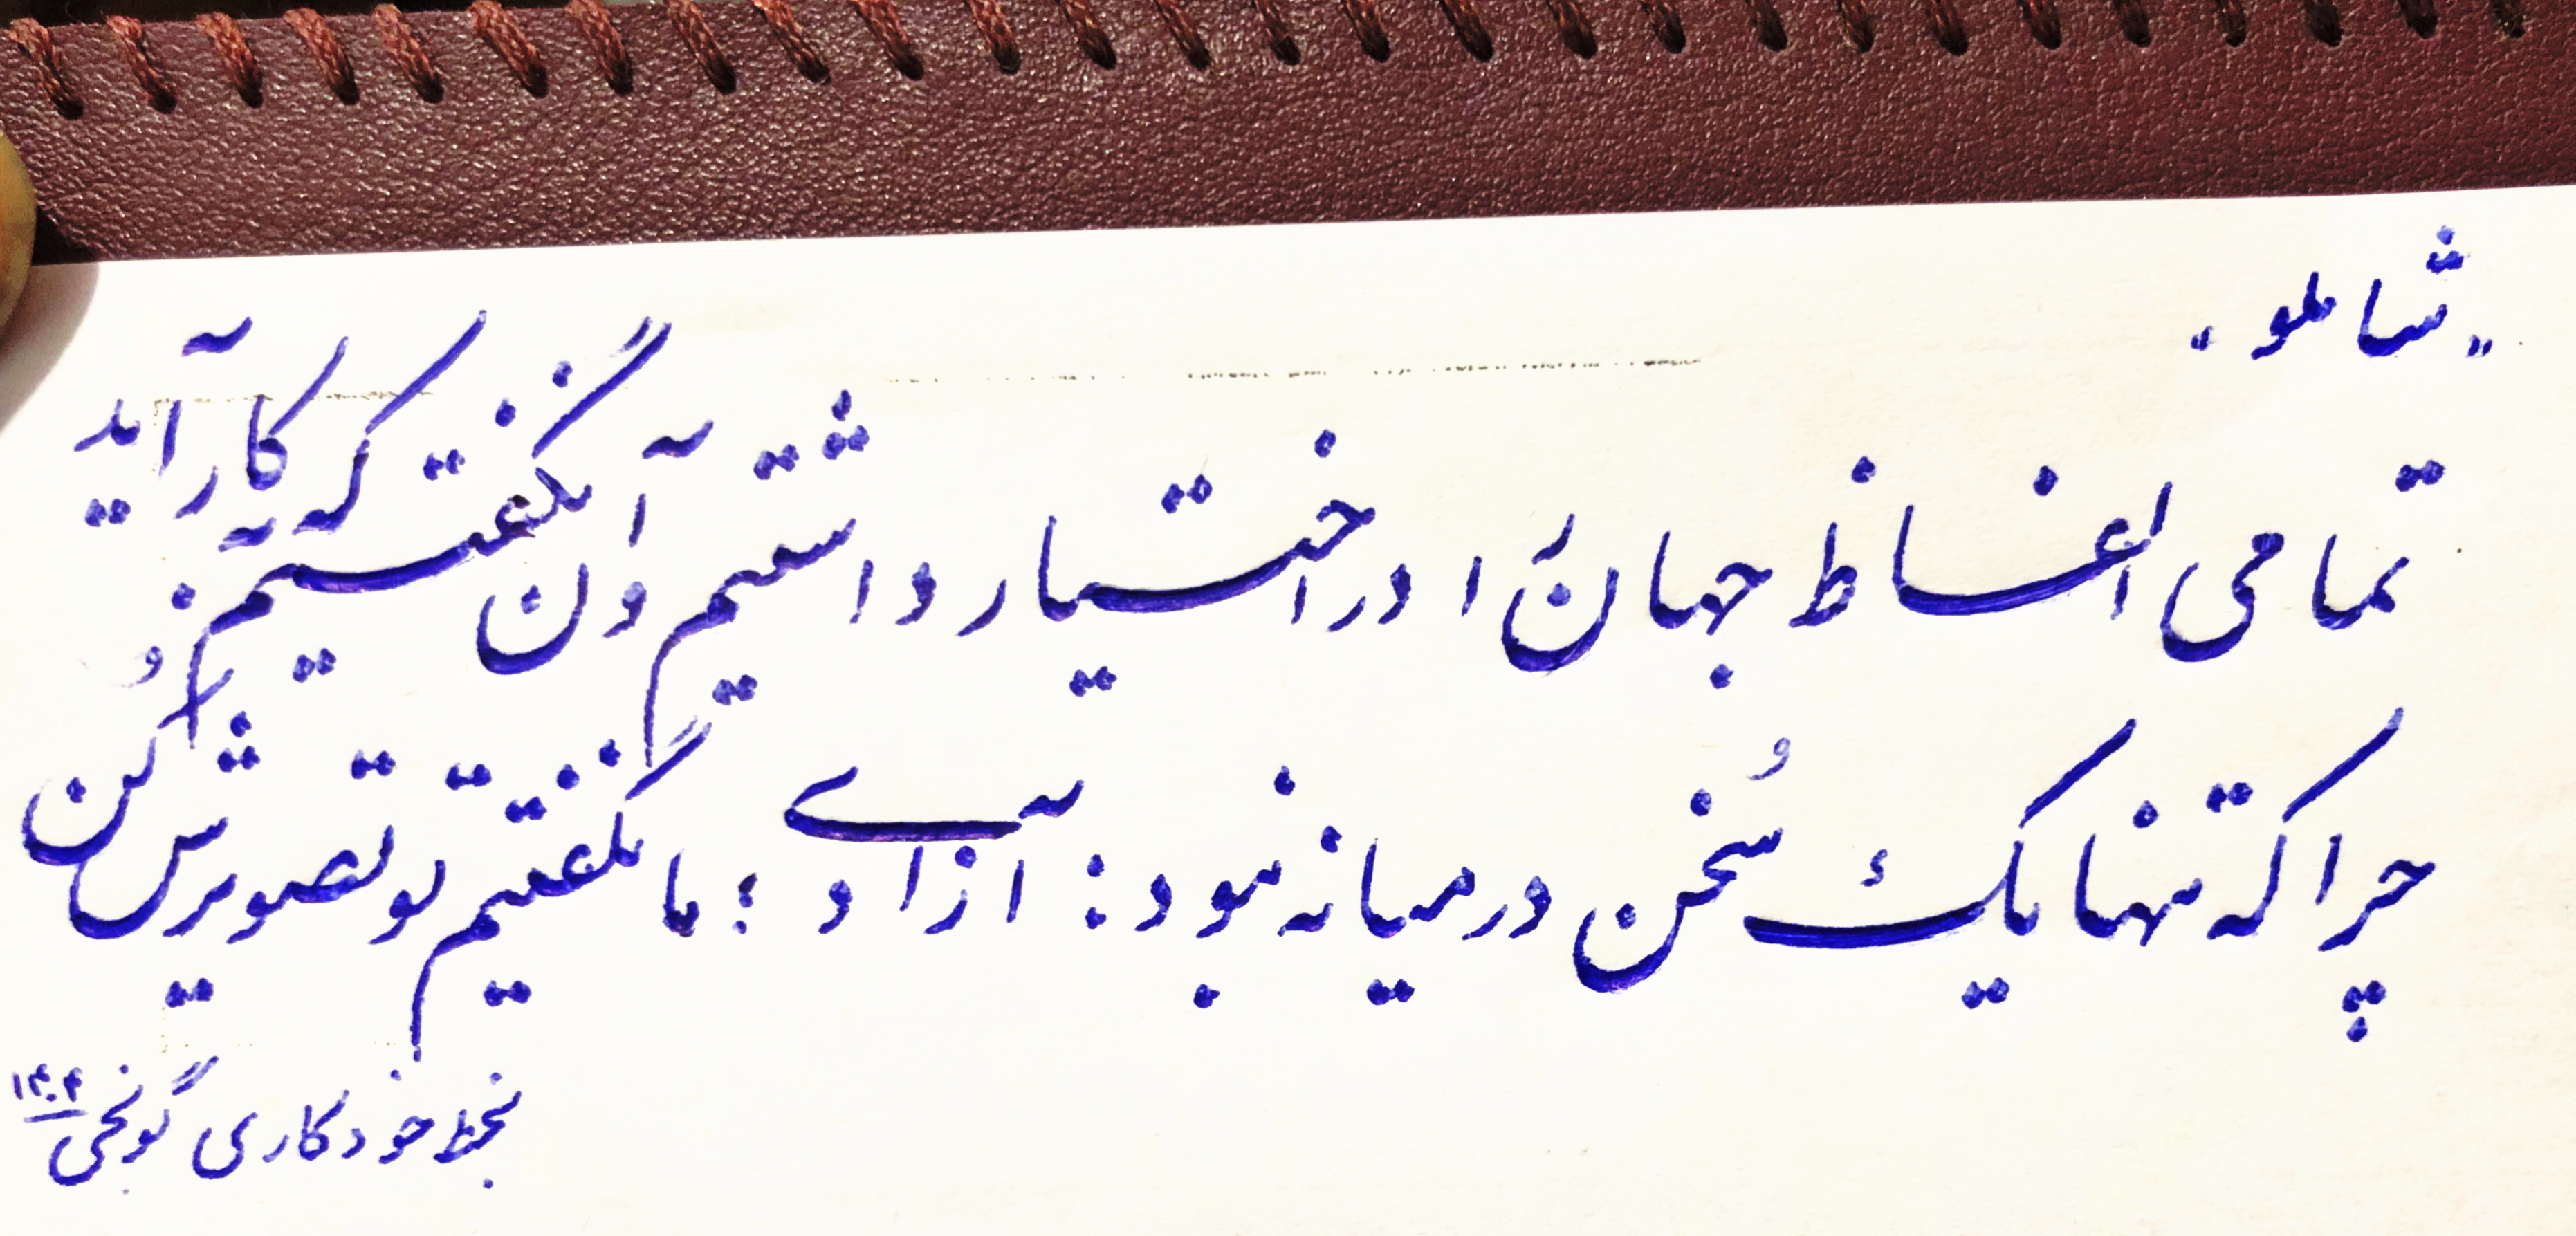 "شاملو"
تمامی الفاظ جهان را در اختیار داشتیم و آن نگفتیم که به کار آید
چرا که تنها یک سُخن در میانه نبود: آزادی؛ ما نگفتیم تو تصویرش کُن
بخط خودکاری گونجی ۱۴۰۴